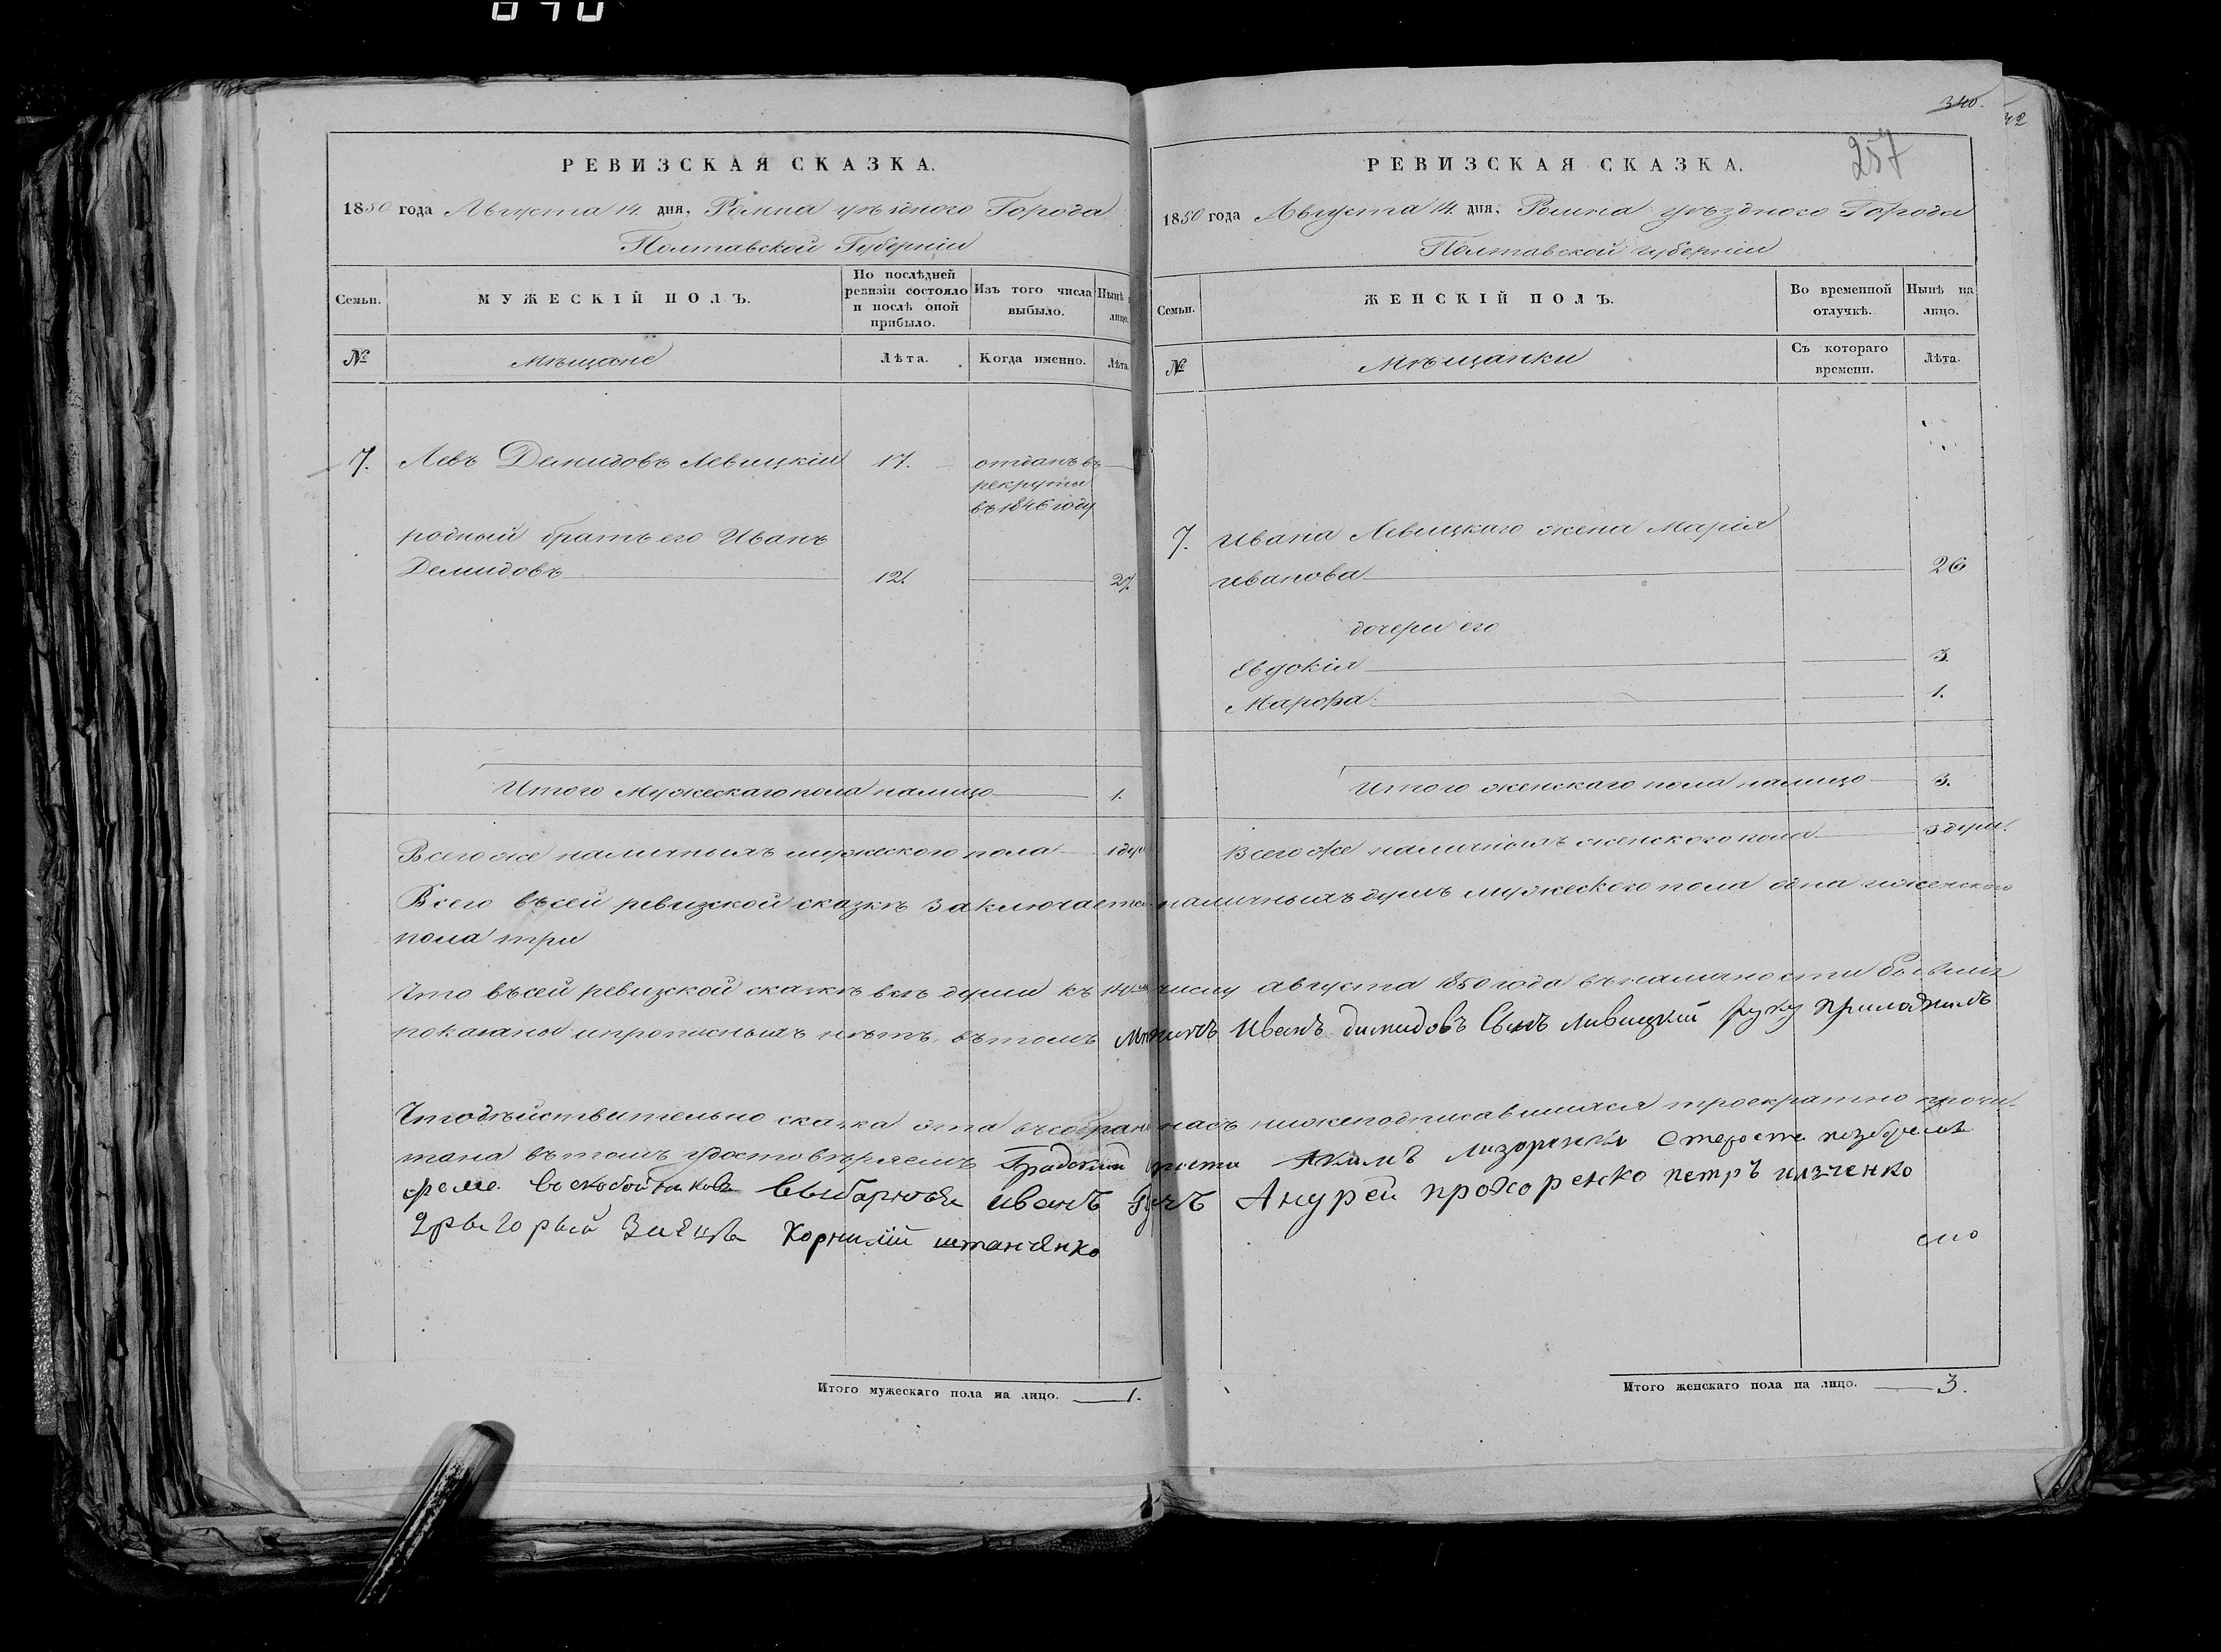 340.
42
257
РЕВИЗСКАЯ СКАЗКА.
1850 года Августа 14. дня, Ромна уѣзднаго Города
Полтавской Губерніи
Семьи.
МУЖЕСКІЙ ПОЛЪ.
По послѣдней ревизіи состояло и послѣ оной прибыло.
Изъ того числа выбыло.
Нынѣ лицо.
№
Мѣщане
Лѣта.
Когда именно.
Лѣта
7. Левъ Демидовъ Левицкій 17. отданъ въ
рекруты
въ 1846 году
родный братъ его Иванъ
Демидовъ 12. 27.
Итого Мужескаго пола налицо 1.
Всего же наличныхъ мужеского пола 1 душ
РЕВИЗСКАЯ СКАЗКА.
1850 года Августа 14. дня, Ромна уѣздного Города
Полтавской губерніи
Семьи.
ЖЕНСКІЙ ПОЛЪ.
Во временной отлучкѣ.
Нынѣ на лицо.
№
Мѣщанки
Съ котораго времени.
Лѣта.
7. Ивана Левицкаго жена Марія
Иванова 26
дочери его
Евдокія 3.
Марфа 1.
Итого женскаго пола налицо 3.
Всего же наличныхъ женского пола 3 душ.
Всего въ сей ревизской сказкѣ заключается наличныхъ душъ мужеского пола одна и женского
пола три
Что въ сей ревизской сказкѣ всѣ души къ 14му числу августа 1850 года въ наличности бывшія
показаны и прописныхъ нѣтъ, въ томъ Иванъ димидовъ Сынъ Ливицкий руку приложилъ
Что действительно сказка эта въ собраніи насъ нижеподписавшихся троекратно прочи-
тана въ томъ удостовѣряемъ Градский Акимъ Староста
Выборные Иванъ Андрей прохоренко петръ
Корнилій штанченко
Итого мужескаго пола на лицо. 1.
Итого женскаго пола на лицо. 3.